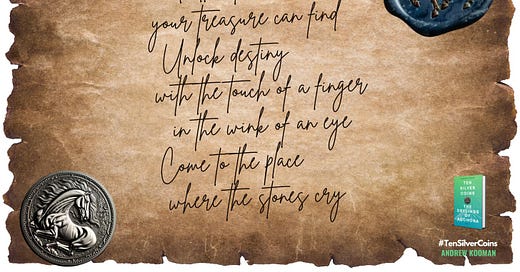 your treasure can find
Unlock destiny
with the touch of a finger
in the wink of an eye
Come to the place
where the stones cry
TEN
SILVER
COINS
THE
DRYLINGS
OF
#TenSilverCoins
ANDREW KOOMAN